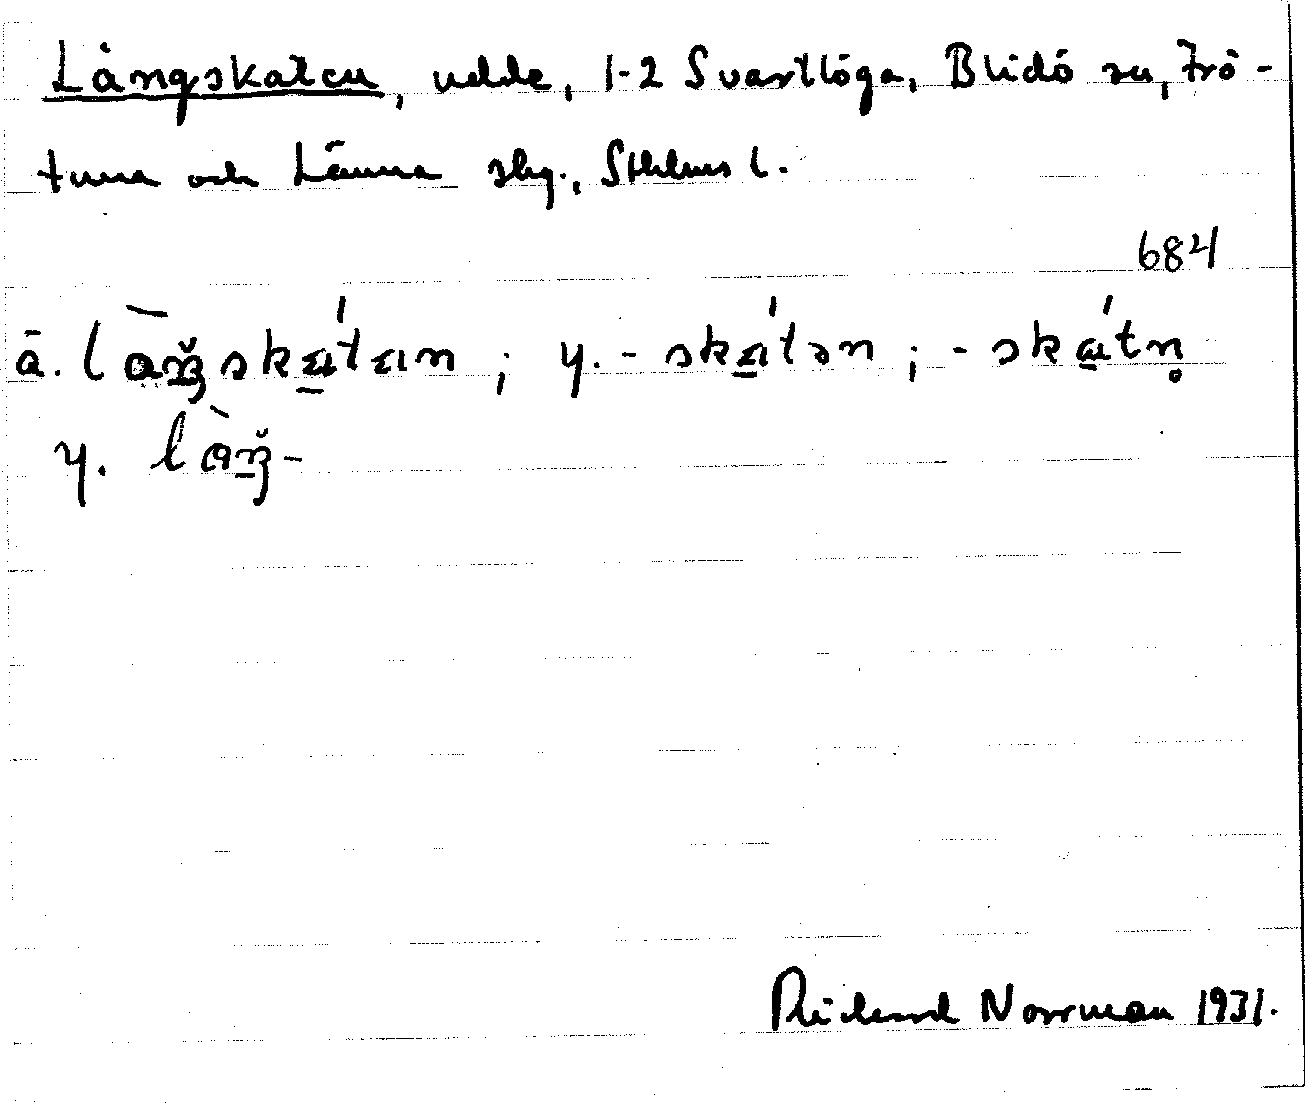 Långskaten, udde, 1-2 Svartlöga, Blidö sn, Frö-
tuna och Länna slg., Sthlms l.
684
ä. lånskatan ; y. - skatən ; - skatn̥
y. lån-
Rickard Norrman 1931.